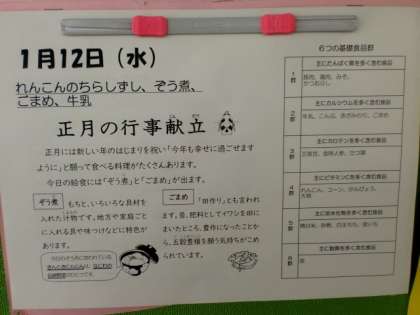 1月12日（水）
れんこんのちらしずし、ぞう煮、
ごまめ、牛乳
正月の行事献立
正月には新しい年のはじまりを祝い「今年も幸せに過ごせます
ように」と願って食べる料理がたくさんあります。
今日の給食には「ぞう煮」と「ごまめ」が出ます。
ぞう煮
もちと、いろいろな具材を
入れた汁物です。地方や家庭ごと
に入れる具や味つけなどに特色が
あります。
ごまめ
「田作り」とも言われま
す。昔、肥料としてイワシを田に
まいたところ、豊作になったことか
ら、五穀豊穣を願う気持ちがこめ
られています。
6つの基礎食品群
主にたんぱく質を多く含む食品
1群
豚肉、鶏肉、みそ、
かつおぶし
主にカルシウムを多く含む食品
2群
牛乳、こんぶ、きざみのり、ごまめ
主にカロテンを多く含む食品
3群
三度豆、金時人参、かつ菜
主にビタミンCを多く含む食品
4群
れんこん、コーン、かんぴょう、
大根
主に炭水化物を多く含む食品
5群
精白米、砂糖、白まもち、里いも
主に脂肪を多く含む食品
6群